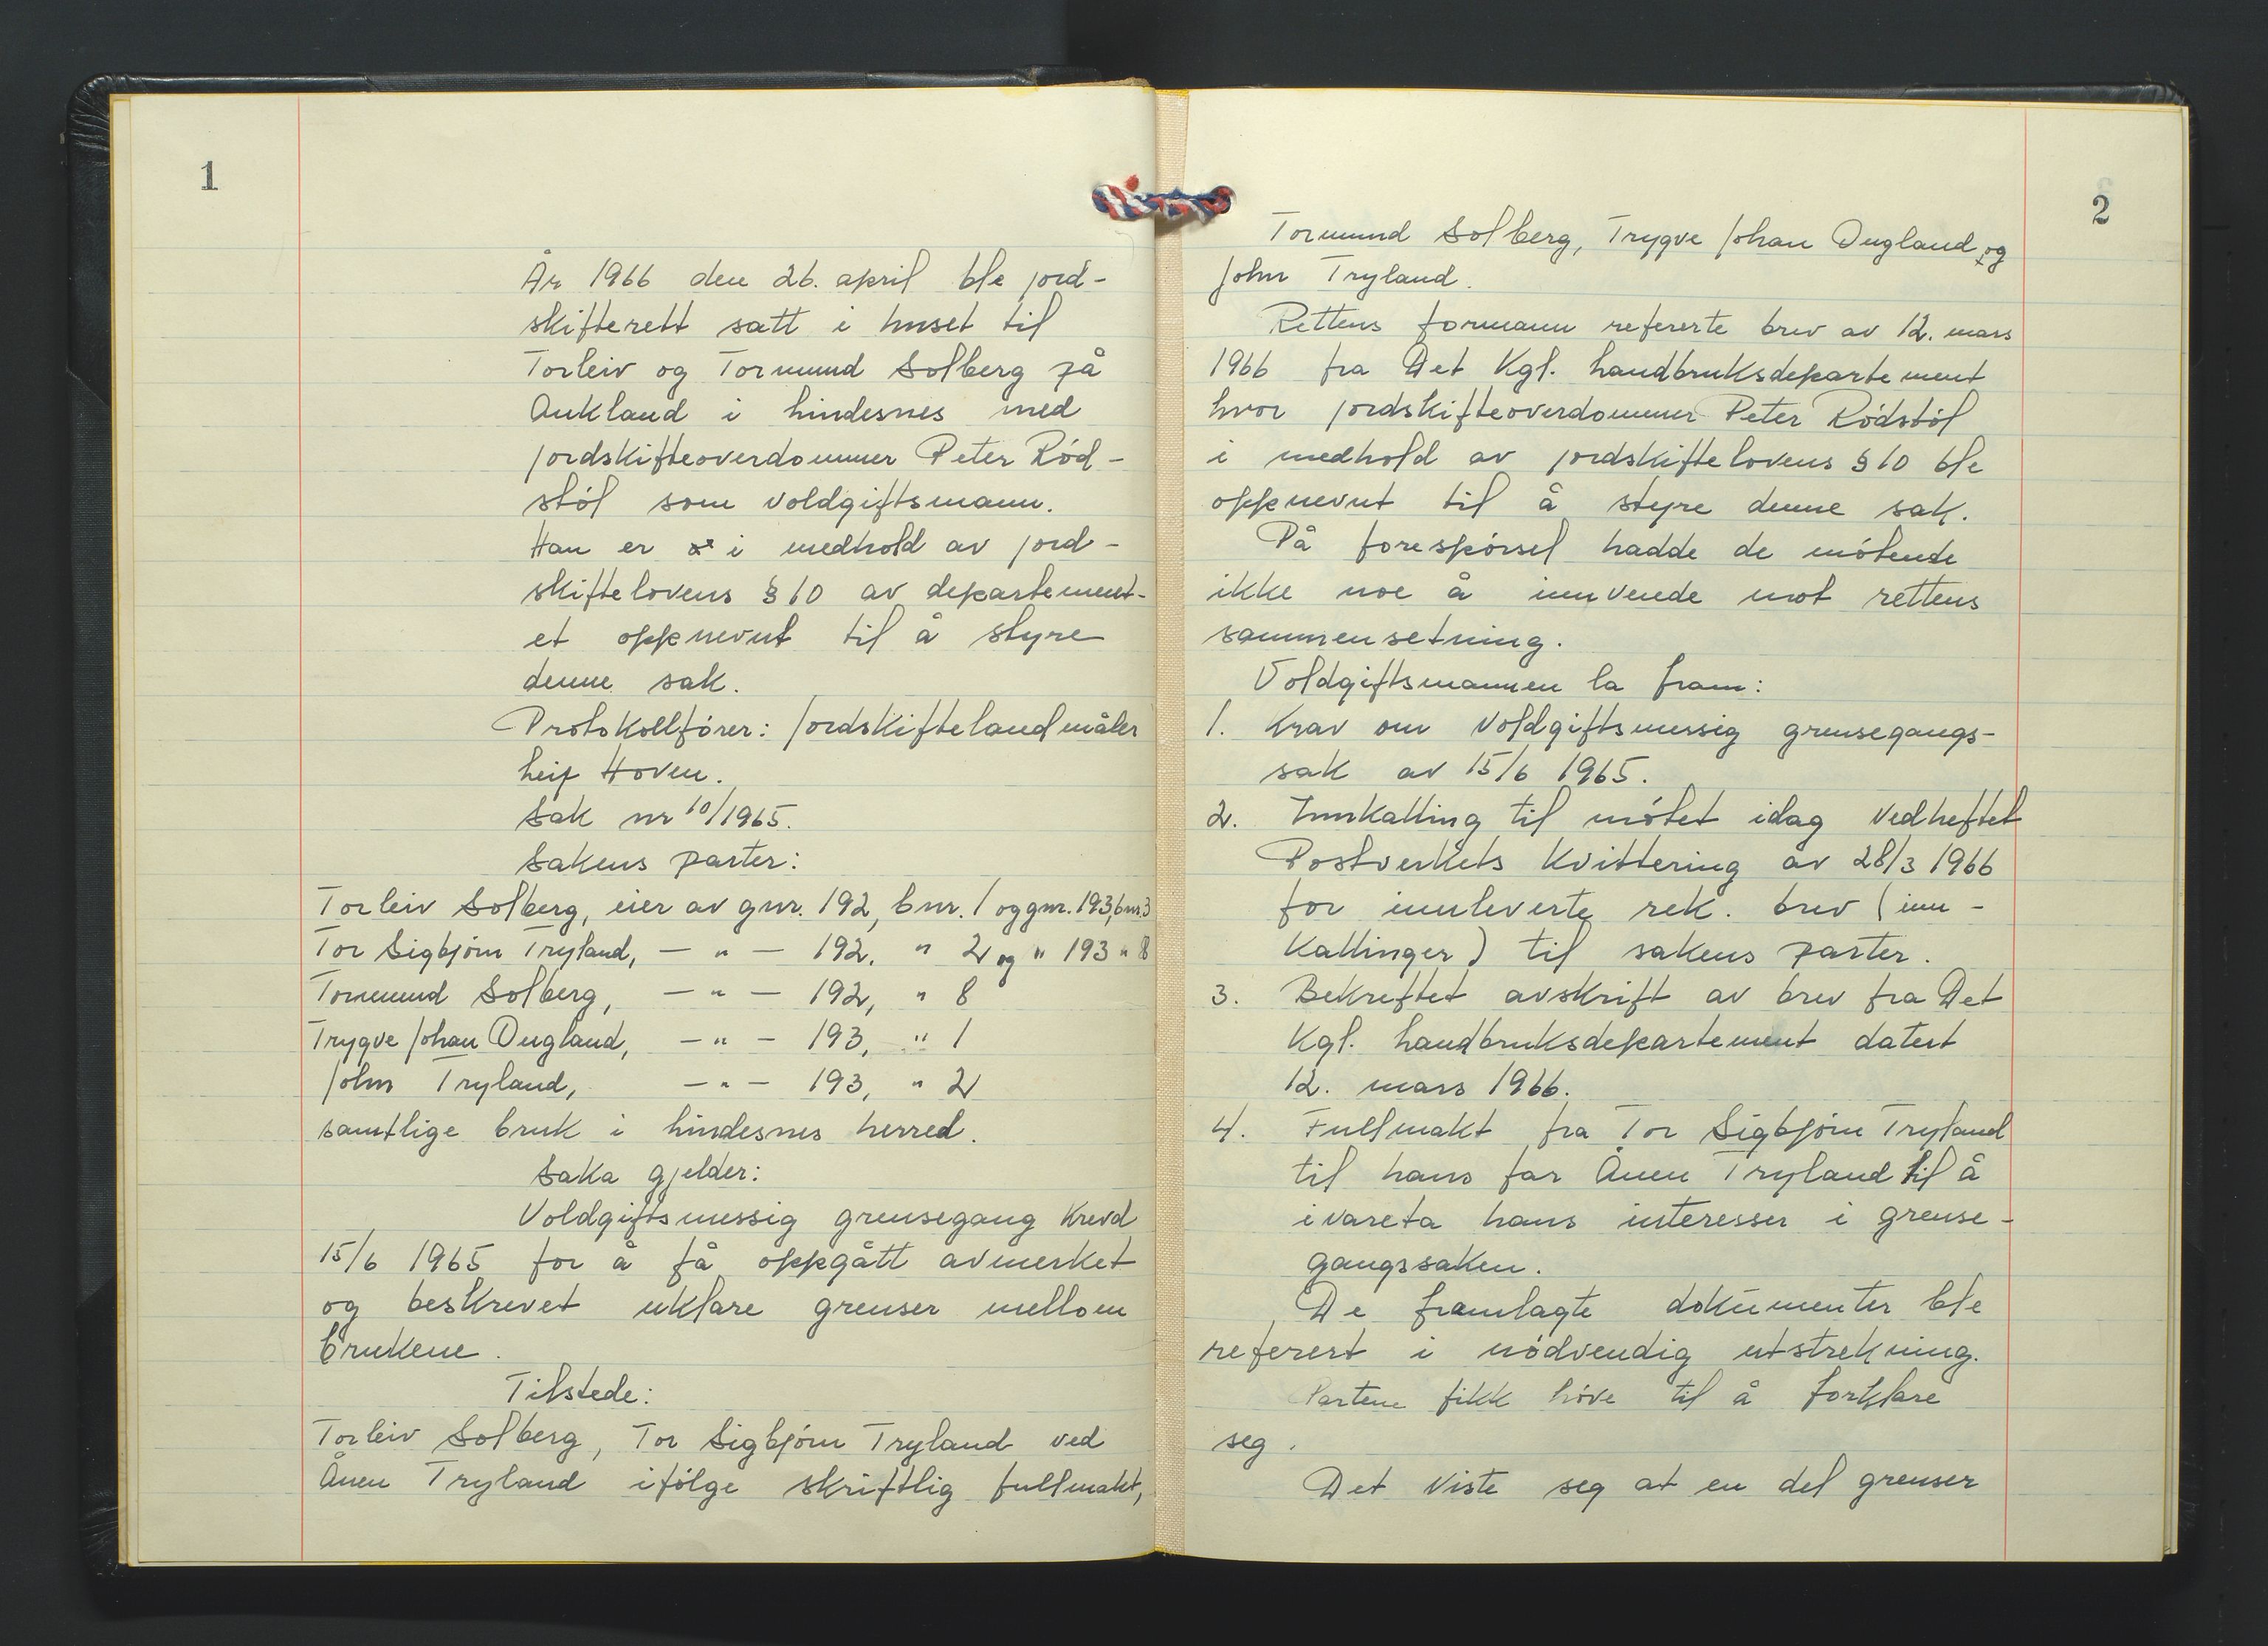 1
År 1966 den 26. april ble jord-
skifterett satt i huset til
Torleiv og Tormund Solberg på
Aukland i Lindesnes med
jordskifteoverdommer Peter Rød-
støl som voldgiftsmann.
Han er i medhold av jord-
skiftelovens § 10 av departement-
et oppnevnt til å styre
denne sak.
Protokollfører: Jordskiftelandmåler
Leif Hoven.
Sak nr 10/1965.
Sakens parter:
Torleiv Solberg, eier av gnr. 192, bnr. 1 og gnr. 193, bnr. 3
Tor Sigbjørn Tryland, — " — 192, " 2 og " 193 " 8
Tormund Solberg, — " — 192, " 8
Trygve Johan Øugland, — " — 193, " 1
John Tryland, — " — 193, " 2
samtlige bruk i Lindesnes herred.
Saka gjelder:
Voldgiftsmessig grensegang krevd
15/6 1965 for å få oppgått avmerket
og beskrevet uklare grenser mellom
brukene.
Tilstede:
Torleiv Solberg, Tor Sigbjørn Tryland ved
Ånen Tryland ifølge skriftlig fullmakt,
2
Tormund Solberg, Trygve Johan Øugland og
John Tryland.
Rettens formann refererte brev av 12. mars
1966 fra Det Kgl. Landbruksdepartement
hvor jordskifteoverdommer Peter Rødstøl
i medhold av jordskiftelovens § 10 ble
oppnevnt til å styre denne sak.
På forespørsel hadde de møtende
ikke noe å innvende mot rettens
sammensetning.
Voldgiftsmannen la fram:
1. Krav om voldgiftsmessig grensegangs-
sak av 15/6 1965.
2. Innkalling til møtet idag vedheftet
Postverkets kvittering av 28/3 1966
for innleverte rek. brev (inn-
kallinger) til sakens parter.
3. Bekreftet avskrift av brev fra Det
Kgl. Landbruksdepartement datert
12. mars 1966.
4. Fullmakt fra Tor Sigbjørn Tryland
til hans far Ånen Tryland til å
ivareta hans interesser i grense-
gangssaken.
De framlagte dokumenter ble
referert i nødvendig utstrekning.
Partene fikk høve til å forklare
seg.
Det viste seg at en del grenser